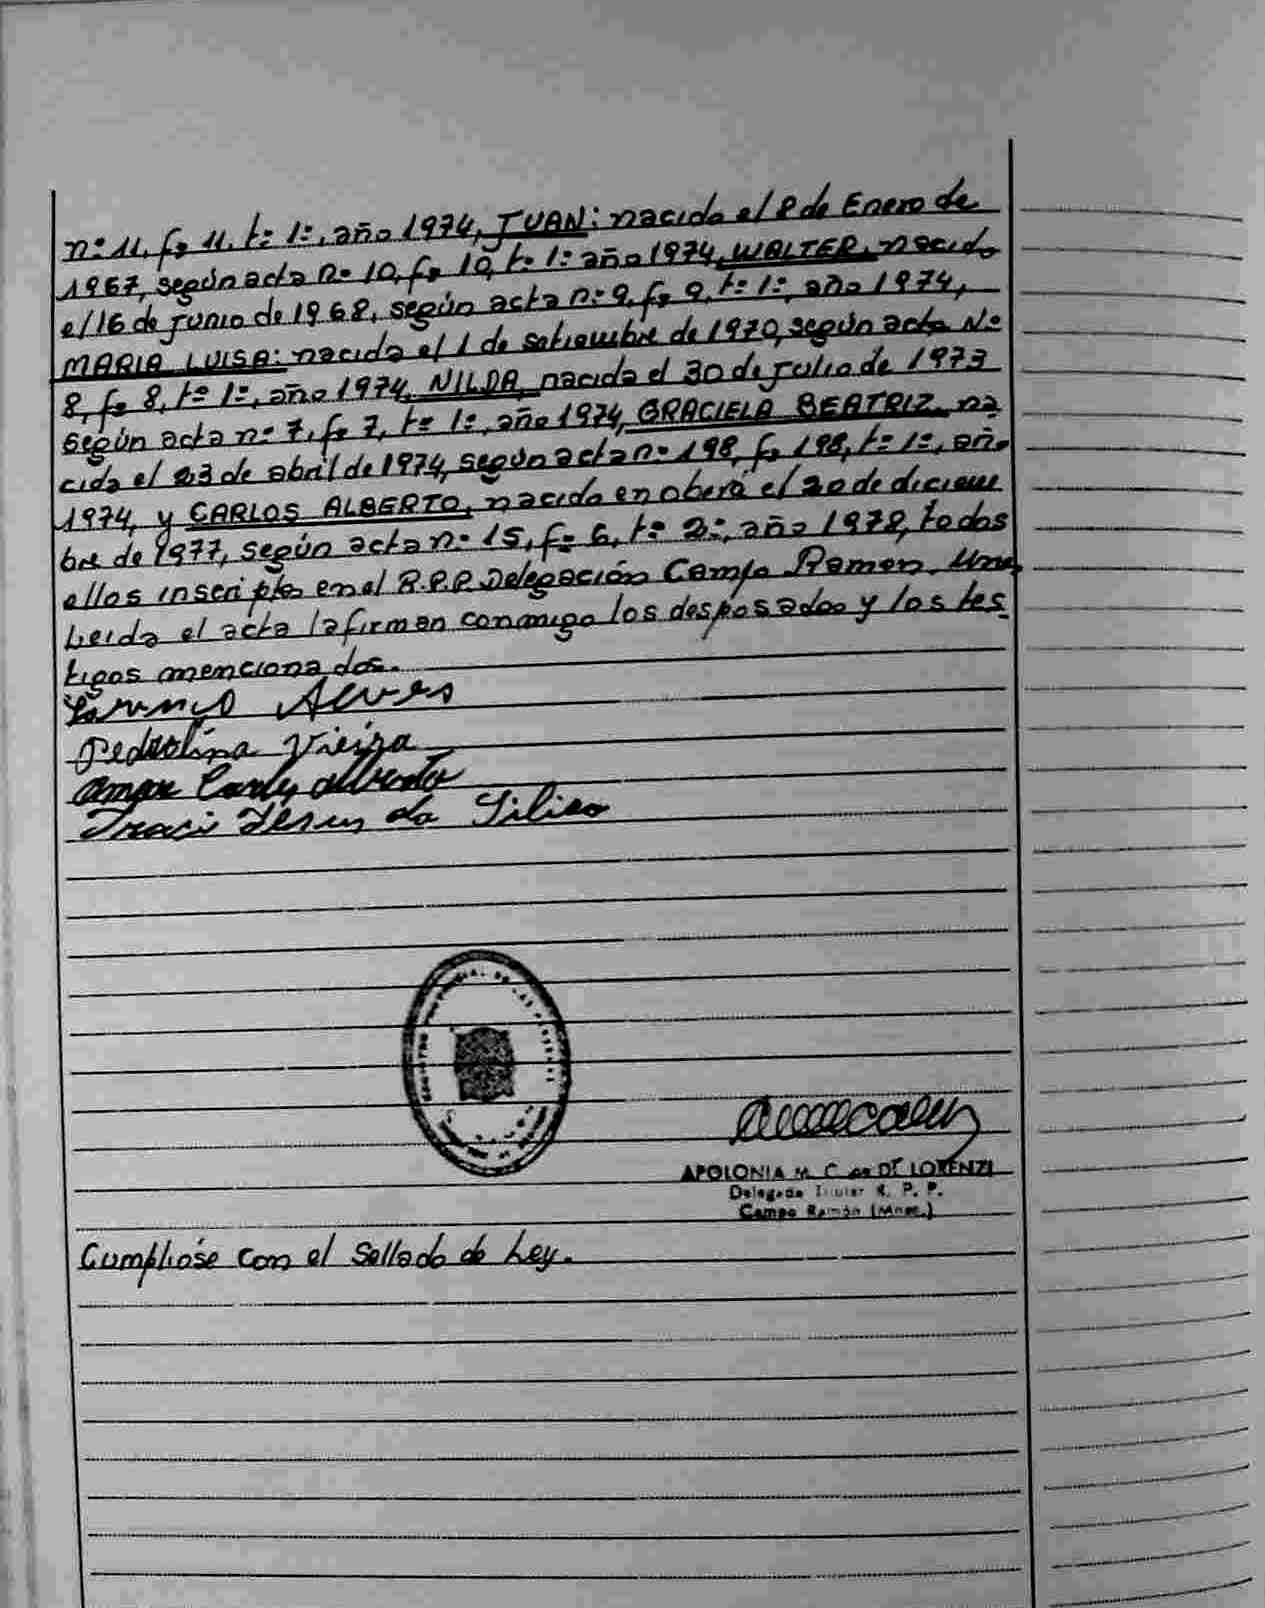 n: 11, fº 11, t: 1:, año 1974, JUAN: nacido el 8 de Enero de
1967, según acta nº 10, fº 10, t: 1: año 1974, WALTER, nacido
el 16 de junio de 1968, según acta n: 9, fº 9, t: 1:, año 1974,
MARIA LUISA: nacida el 1 de setiembre de 1970, según acta Nº
8, fº 8, t: 1:, año 1974, NILDA, nacida el 30 de julio de 1973
según acta n: 7, fº 7, t: 1:, año 1974, GRACIELA BEATRIZ, na
cida el 23 de abril de 1974, según acta n: 198, fº 198, t: 1:, año
1974, y CARLOS ALBERTO, nacido en oberá el 20 de diciem
bre de 1977, según acta n: 15, fº 6, t: 2:, año 1978, todos
ellos inscriptos en el R.P.P. Delegación Campo Ramón, Mnes,
Leida el acta la firman conmigo los desposados y los tes
tigos mencionados.
Alves
Pedrolina Vieira
Carlos Alberto
Iraci Jesus da
APOLONIA M. C. de DI LORENZI
Delegada Titular R. P. P.
Campo Ramón (Mnes.)
Cumplióse con el sellado de Ley.